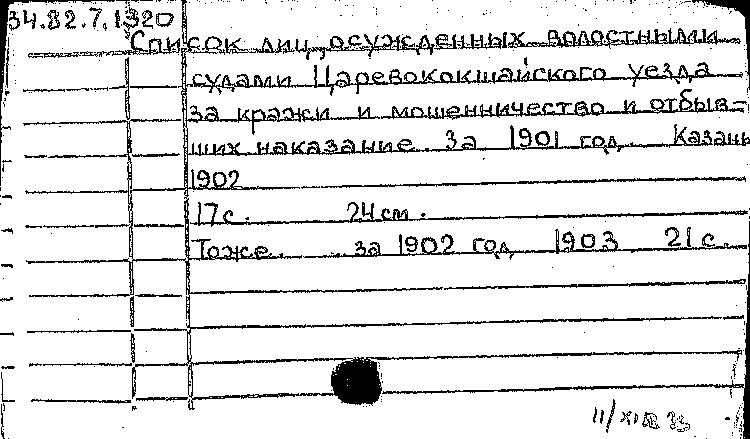 34.82.7.1320
Список лиц, осужденных волостными
судами Царевококшайского уезда
за кражи и мошенничество и отбыв-
ших наказание. За 1901 год. Казань
1902
17с. 24см.
Тоже. за 1902 год 1903 21с.